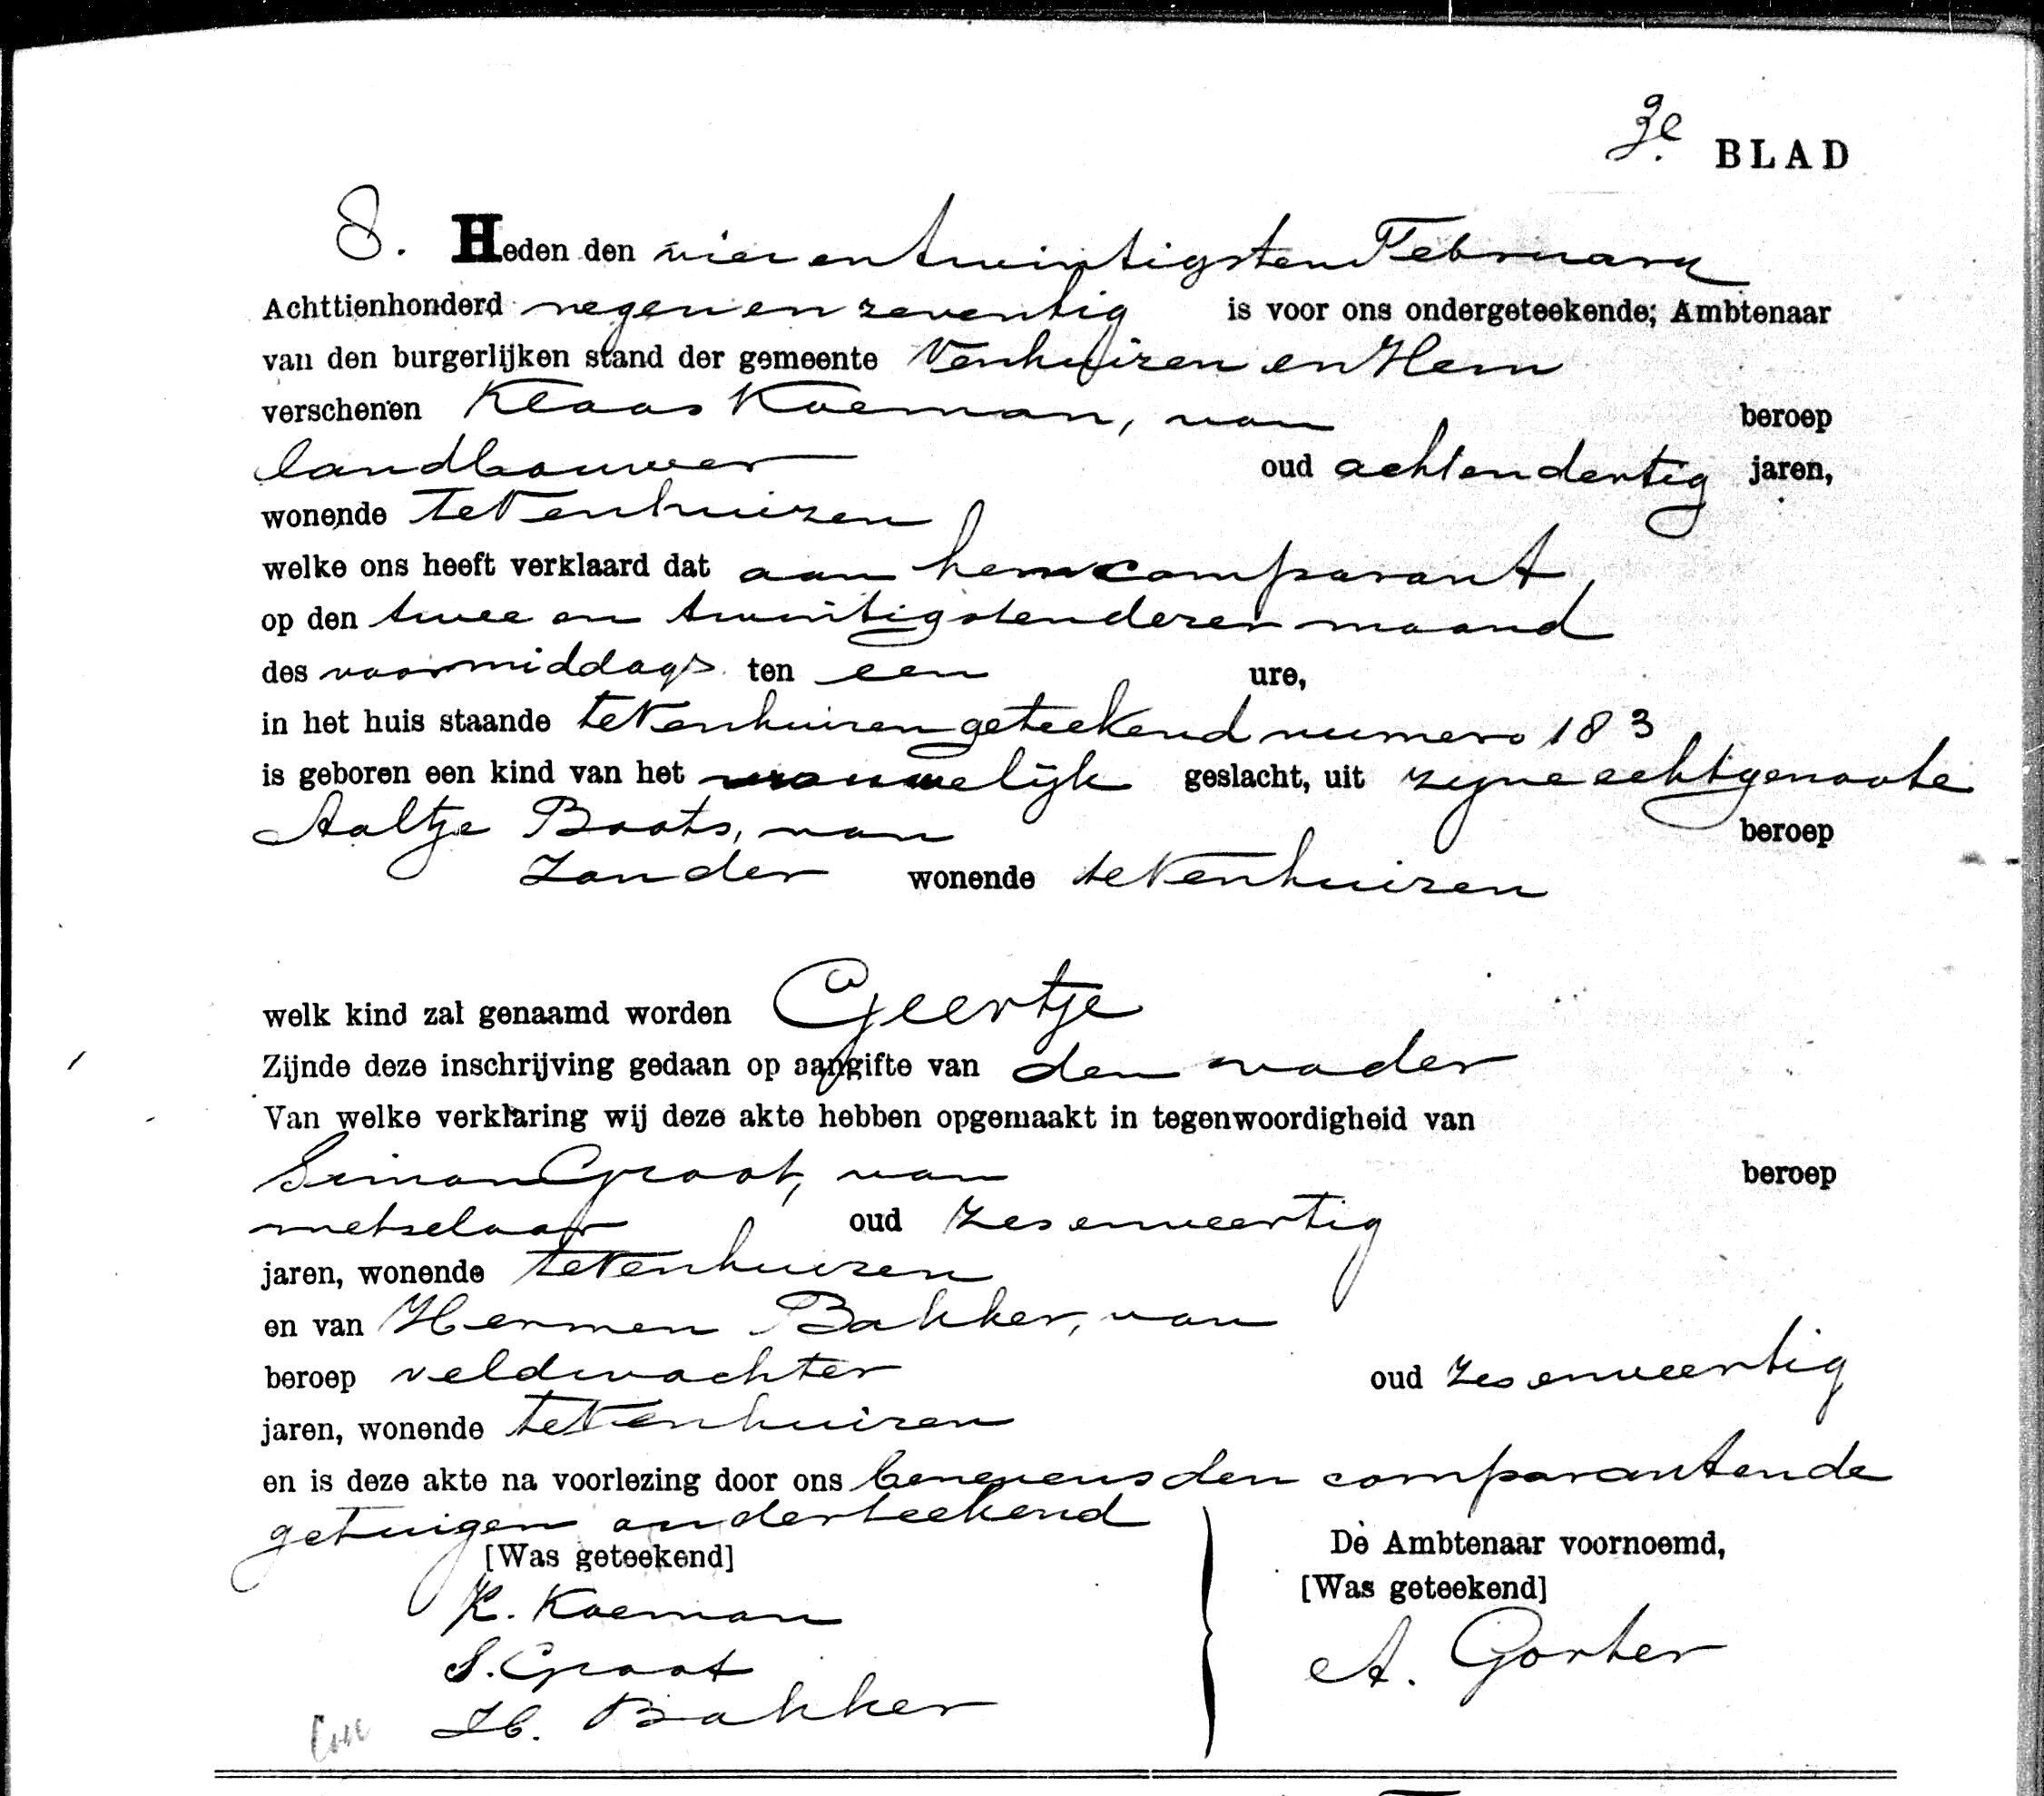 3e. BLAD
8. Heden den vier en twintigsten February
Achttienhonderd negen en zeventig is voor ons ondergeteekende; Ambtenaar
van den burgerlijken stand der gemeente Venhuizen en Hem
verschenen Klaas Koeman, van beroep
landbouwer oud achtendertig jaren,
wonende te Venhuizen
welke ons heeft verklaard dat aan hem comparant,
op den twee en twintigsten dezer maand
des voormiddags ten een ure,
in het huis staande te Venhuizen geteekend numero 183
is geboren een kind van het vrouwelijk geslacht, uit zijne echtgenoote
Aaltje Boots, van beroep
zonder wonende te Venhuizen
welk kind zal genaamd worden Geertje
Zijnde deze inschrijving gedaan op aangifte van den vader
Van welke verklaring wij deze akte hebben opgemaakt in tegenwoordigheid van
Simon Groot, van beroep
metselaar oud zes en veertig
jaren, wonende te Venhuizen
en van Hermen Bakker, van
beroep veldwachter oud zes en veertig
jaren, wonende te Venhuizen
en is deze akte na voorlezing door ons benevens den comparant en de
getuigen onderteekend
[Was geteekend] De Ambtenaar voornoemd,
K. Koeman [Was geteekend]
S. Groot A. Gorter
H. Bakker